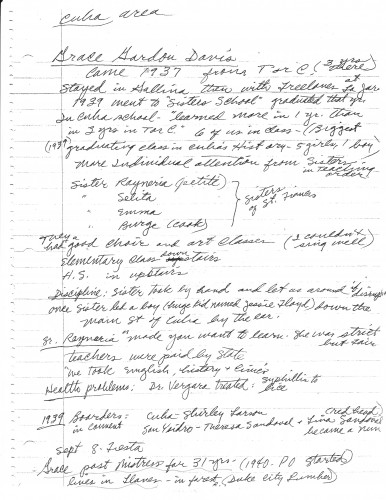 Cuba area
Grace Gordon Davis
Came 1937 from T or C. (3 yrs there)
Stayed in Hallina then with Freelones at La Jar
1939 went to "Sisters School" graduated that yr.
In Cuba school "learned more in 1 yr. than
in 3 yrs in T or C" 6 of us in class - (Biggest
(1939 graduating class in Cuba's History - 5 girls, 1 boy)
more Individual attention from Sisters in teaching order)
Sister Rayneria (petite)
" Selita
" Emma
" Burge (cook)
Sisters of St. Francis
They had good choir and art classes (I couldn't sing well)
Elementary class downstairs
H.S. in upstairs
Discipline: Sister took by hand and let us around
once Sister led a boy (huge kid named Jessie Floyd) down the
main St of Cuba by the ear.
Sr. Rayneria "made you want to learn. She was strict but fair
teachers were paid by State
"We took English, history & civics"
Health problems: Dr. Vergara treated: lice
1939 Boarders: Cuba Shirley Larson
in convent San Ysidro - Theresa Sandoval + Lina Sandoval became a nun
Sept 8 - Fiesta
Grace post mistress for 31 yrs - (1940 - PO started)
lives in - in forest (Duke City Lumber)